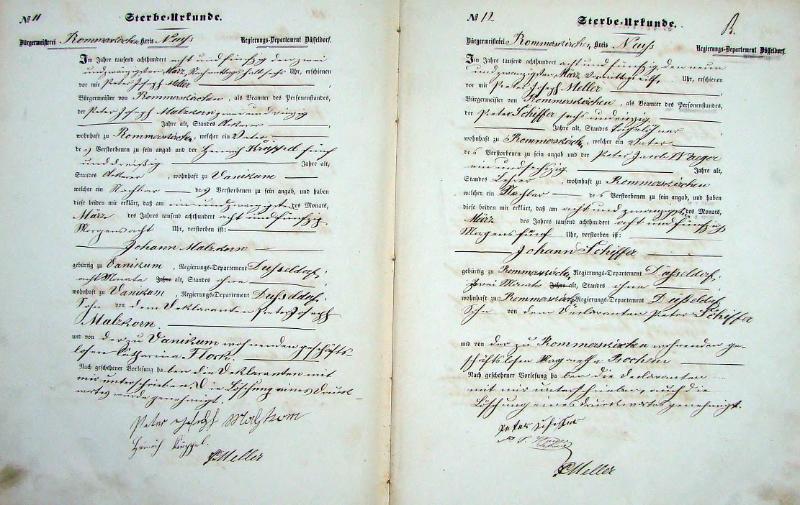 № 11
Sterbe-Urkunde.
Bürgermeisterei Rommerskirchen Kreis Neuß Regierungs-Departement Düsseldorf.
Im Jahre tausend achthundert acht und fünfzig den zwei
und zwanzigsten März Nachmittags Uhr, erschienen
vor mir Peter Joseph Meller
Bürgermeister von Rommerskirchen, als Beamter des Personenstandes,
der Peter Joseph Malzkorn
Jahre alt, Standes Ackerer
wohnhaft zu Rommerskirchen, welcher ein Vater
des Verstorbenen zu sein angab und der Heinrich Küppel fünf
und dreißig Jahre alt,
Standes Ackerer, wohnhaft zu Vanikum
welcher ein Nachbar des Verstorbenen zu sein angab, und haben
diese beiden mir erklärt, daß am ein und zwanzigsten des Monats,
März des Jahres tausend achthundert acht und fünfzig
Morgens acht Uhr, verstorben ist:
Johann Malzkorn
gebürtig zu Vanikum, Regierungs-Departement Düsseldorf,
acht Monate Jahre alt, Standes ohne
wohnhaft zu Vanikum, Regierungs-Departement Düsseldorf
Sohn von dem Deklaranten Peter Joseph
Malzkorn.
und von der zu Vanikum wohnenden geschäfts-
losen Catharina Flock.
Nach geschehener Vorlesung haben die Deklaranten mit
mir unterschrieben. Die Löschung eines Druck-
wortes wurde genehmigt.
Peter Joseph Malzkorn
Heinrich Küppel
PMeller
№ 12
B.
Sterbe-Urkunde.
Bürgermeisterei Rommerskirchen Kreis Neuß Regierungs-Departement Düsseldorf.
Im Jahre tausend achthundert acht und fünfzig den neun
und zwanzigsten März Vormittags Uhr, erschienen
vor mir Peter Joseph Meller
Bürgermeister von Rommerskirchen, als Beamter des Personenstandes,
der Peter Schiffer sechs und zwanzig
Jahre alt, Standes Tagelöhner
wohnhaft zu Rommerskirchen, welcher ein Vater
des Verstorbenen zu sein angab und der Peter Jacob
Jahre alt,
Standes Lehrer, wohnhaft zu Rommerskirchen
welcher ein Nachbar des Verstorbenen zu sein angab, und haben
diese beiden mir erklärt, daß am acht und zwanzigsten des Monats,
März des Jahres tausend achthundert acht und fünfzig
Morgens fünf Uhr, verstorben ist:
Johann Schiffer
gebürtig zu Rommerskirchen, Regierungs-Departement Düsseldorf,
zwei Monate Jahre alt, Standes ohne
wohnhaft zu Rommerskirchen, Regierungs-Departement Düsseldorf
Sohn von dem Deklaranten Peter Schiffer
und von der zu Rommerskirchen wohnenden ge-
schäftslosen
Nach geschehener Vorlesung haben die Deklaranten
mit mir unterschrieben, auch die
Löschung eines Druckwortes genehmigt.
Peter Schiffer
PMeller